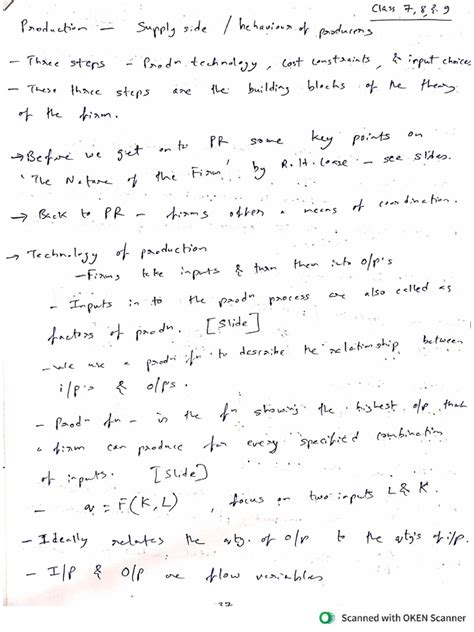 Class 7, 8, & 9
Production — Supply side / behaviour of producers
- Three steps - Prodn technology, cost constraints, & input choices
- These three steps are the building blocks of the theory
of the firm.
→ Before we get onto PR some key points on
'The Nature of the Firm' by R.H. Coase - see slides.
→ Back to PR - firms offer a means of coordination.
→ Technology of production
- Firms take inputs & turn them into o/p's
- Inputs in to the prodn process are also called as
factors of prodn. [Slide]
- We use a prodn fn to describe the relationship between
i/p's & o/p's.
- Prodn fn - is the fn showing the highest o/p that
a firm can produce for every specified combination
of inputs. [Slide]
- q = F(K, L) , focus on two inputs L & K.
- Ideally relates the qty. of o/p to the qty's of i/p.
- I/p & O/p are flow variables
Scanned with OKEN Scanner